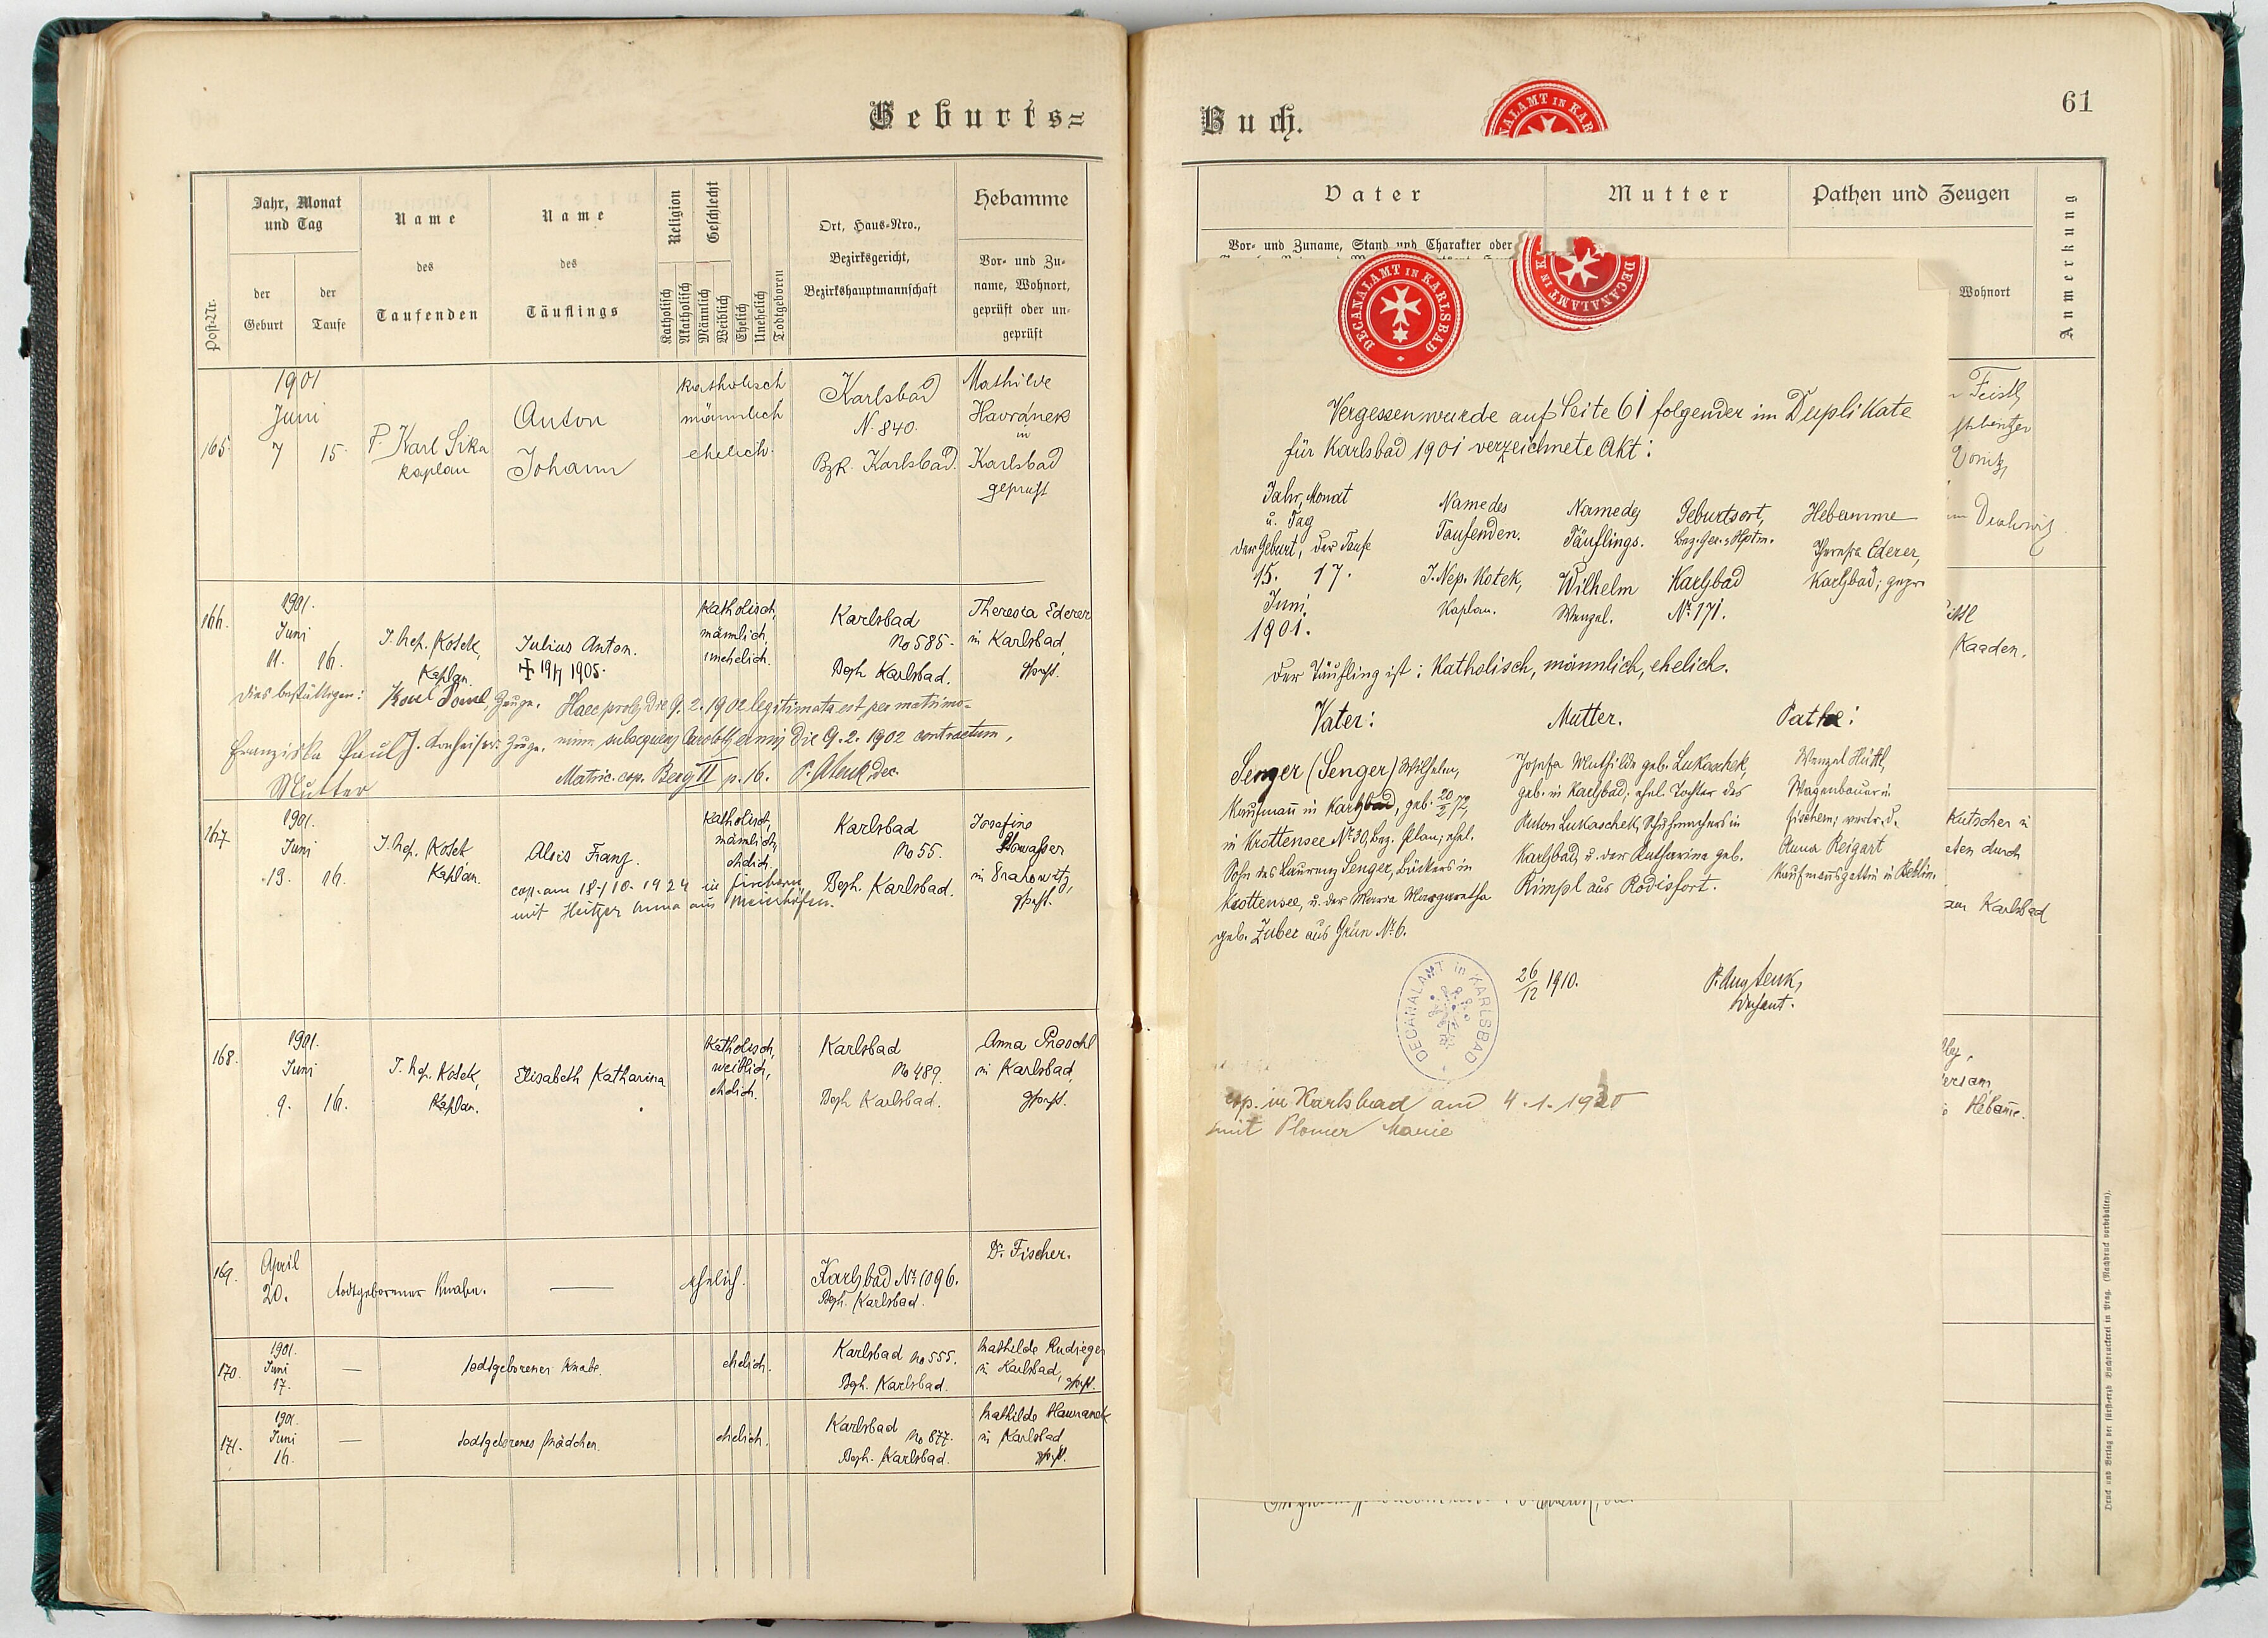 Geburts=
Jahr, Monat
und Tag
der
Geburt
der
Taufe
Post-Nr.
Name
des
Taufenden
Name
des
Täuflings
Religion
Geschlecht
Katholisch
Akatholisch
Männlich
Weiblich
Ehelich
Unehelich
Todtgeboren
Ort, Haus-Nro.,
Bezirksgericht,
Bezirkshauptmannschaft
Hebamme
Vor- und Zu-
name, Wohnort,
geprüft oder un-
geprüft
165.
1901
Juni
7 15.
P. Karl Sika
kaplan
Anton
Johann
katholisch
männlich
ehelich.
Karlsbad
N. 840.
Bzk. Karlsbad.
Mathilde
Havránek
in
Karlsbad
geprüft
166.
1901.
Juni
11. 16.
J. Nep. Kotek,
Kaplan.
Julius Anton.
katholisch,
männlich,
unehelich.
Karlsbad
No 585.
Bzgh. Karlsbad.
Theresia Ederer
in Karlsbad,
gepr.
Dies bestättigen: Zeuge. Haec proles die 9. 2. 1902 legitimata est per matrimo-
Franziska Paul Zeuge. nium subsequens die 9. 2. 1902 contractum,
Mutter
Matric. cop. Berg II p. 16.
167
1901.
Juni
13. 16.
J. Nep. Kotek
Kaplan.
Alois Franz.
cop. am 18/10. 1924 in Fischern
mit Heitzer Anna aus Meierhöfen.
katholisch,
männlich,
ehelich.
Karlsbad
No 55.
Bzgh. Karlsbad.
Josefine
in Drahowitz,
gepr.
168.
1901.
Juni
9. 16.
J. Nep. Kotek,
Kaplan.
Elisabeth Katharina
katholisch,
weiblich,
ehelich.
Karlsbad
No 489.
Bzgh. Karlsbad.
Anna
in Karlsbad,
gepr.
169.
April
20.
todtgeborener Knabe.
ehelich.
Karlsbad Nr. 1096.
Bzgh. Karlsbad.
Dr. Fischer.
170.
1901.
Juni
17.
todtgeborener Knabe.
ehelich.
Karlsbad No 555.
Bzgh. Karlsbad.
Mathilde Rudieger
in Karlsbad, gepr.
171.
1901.
Juni
16.
todtgeborenes Mädchen.
ehelich.
Karlsbad
No 877.
Bzgh. Karlsbad.
Mathilde Hawranek
in Karlsbad
gepr.
Buch.
61
Vater
Mutter
Pathen und Zeugen
Anmerkung
Vor- und Zuname, Stand und Charakter oder
Wohnort
DECANALAMT IN KARLSBAD
Vergessen wurde auf Seite 61 folgender im Duplikate
für Karlsbad 1901 verzeichnete Akt:
Jahr, Monat
u. Tag
der Geburt, der Taufe
15. 17.
Juni
1901.
Name des
Taufenden.
J. Nep. Kotek,
Kaplan.
Name des
Täuflings.
Wilhelm
Wenzel.
Geburtsort,
Bez. Ger. Hptm.
Karlsbad
Nr. 171.
Hebamme
Theresia Ederer,
Karlsbad; gepr.
Der Täufling ist: Katholisch, männlich, ehelich.
Vater:
Senger (Senger) Wilhelm,
Kaufmann in Karlsbad, geb.
in Krottensee Nr. 30, Bez. Plan; ehel.
Sohn des Laurenz Senger, Bäckers in
Krottensee, u. der Maria Margaretha
geb. Zuber aus Grün Nr. 6.
Mutter.
Josefa Mathilde geb. Lukaschek,
geb. in Karlsbad; ehel. Tochter des
Anton Lukaschek, Schuhmachers in
Karlsbad, u. der Katharina geb.
Rimpl aus Rodisfort.
Pathe:
Wenzel Hüttl,
Wagenbauer in
Fischern; vertr. d.
Anna Reigart
Kaufmannsgattin in Berlin.
26/12 1910.
Dechant.
DECANALAMT in KARLSBAD
cop. in Karlsbad am 4. 1. 1920
mit Plomer Marie
Feistl
Kaaden.
Kutscher in
durch
Karlsbad
Druck und Verlag der fürst-erzb Buchdruckerei in Prag. (Nachdruck vorbehalten).